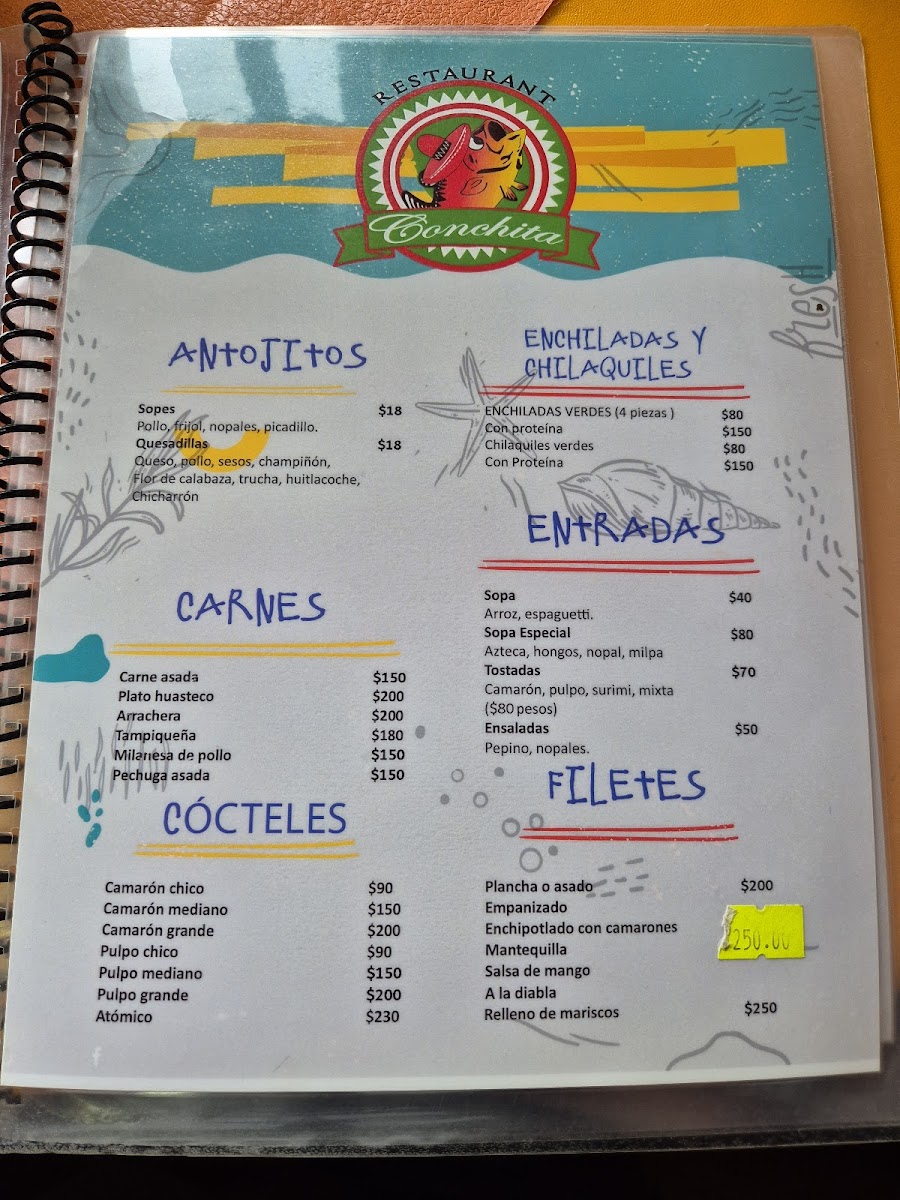 RESTAURANT
Conchita
fresh
ANTOJITOS
Sopes $18
Pollo, frijol, nopales, picadillo.
Quesadillas $18
Queso, pollo, sesos, champiñón,
Flor de calabaza, trucha, huitlacoche,
Chicharrón
CARNES
Carne asada $150
Plato huasteco $200
Arrachera $200
Tampiqueña $180
Milanesa de pollo $150
Pechuga asada $150
CÓCTELES
Camarón chico $90
Camarón mediano $150
Camarón grande $200
Pulpo chico $90
Pulpo mediano $150
Pulpo grande $200
Atómico $230
f
ENCHILADAS Y
CHILAQUILES
ENCHILADAS VERDES (4 piezas ) $80
Con proteína $150
Chilaquiles verdes $80
Con Proteína $150
ENTRADAS
Sopa $40
Arroz, espaguetti.
Sopa Especial $80
Azteca, hongos, nopal, milpa
Tostadas $70
Camarón, pulpo, surimi, mixta
($80 pesos)
Ensaladas $50
Pepino, nopales.
FILETES
Plancha o asado $200
Empanizado
Enchipotlado con camarones 250.00
Mantequilla
Salsa de mango
A la diabla
Relleno de mariscos $250